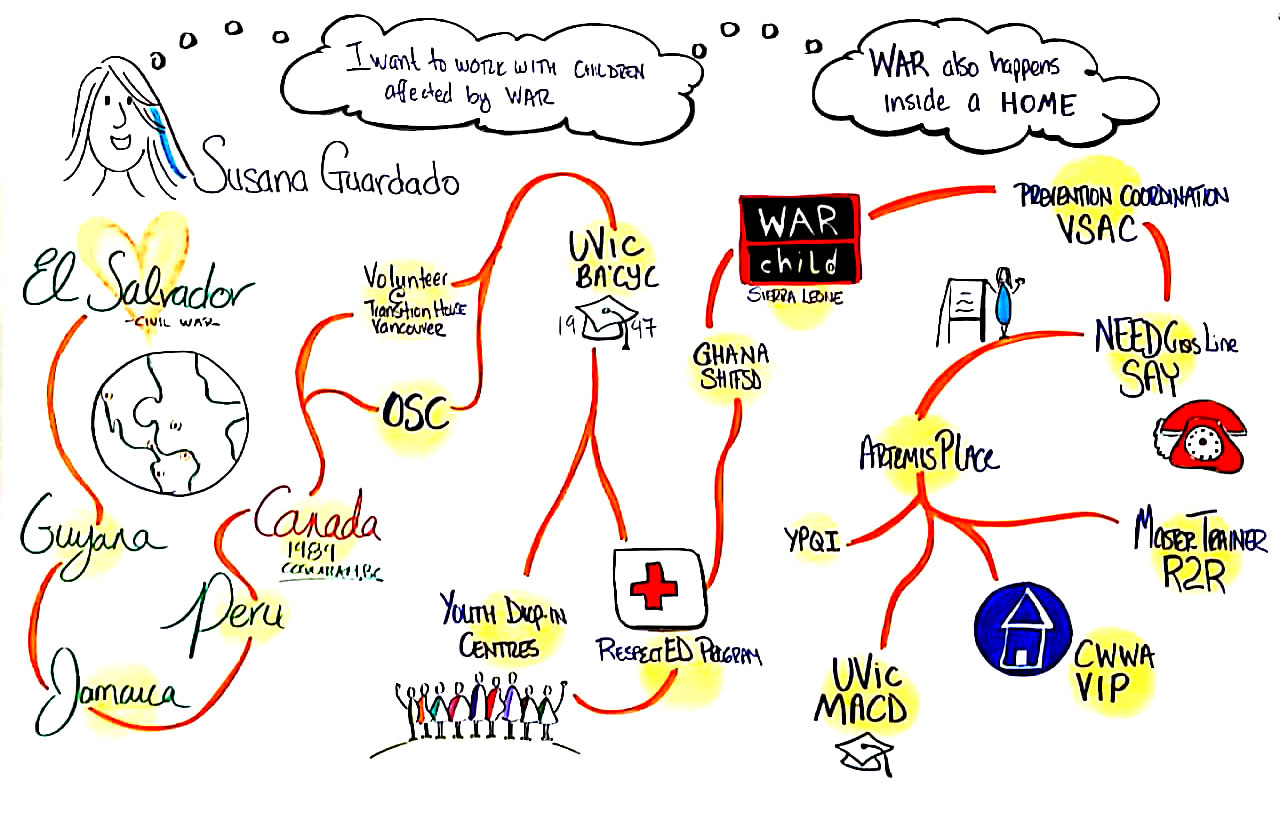 I want to WORK WITH CHILDREN
affected by WAR
WAR also happens
inside a HOME
Susana Guardado
El Salvador
-CIVIL WAR-
Guyana
Jamaica
Peru
Canada
1989
Volunteer
@
Transition House
Vancouver
OSC
UVic
BA·CYC
19 97
Youth Drop-in
Centres
RespectED Program
GHANA
WAR
child
Sierra Leone
Prevention Coordination
VSAC
NEED Crisis Line
SAY
Artemis Place
YPQI
UVic
MACD
CWWA
VIP
Master Trainer
R2R